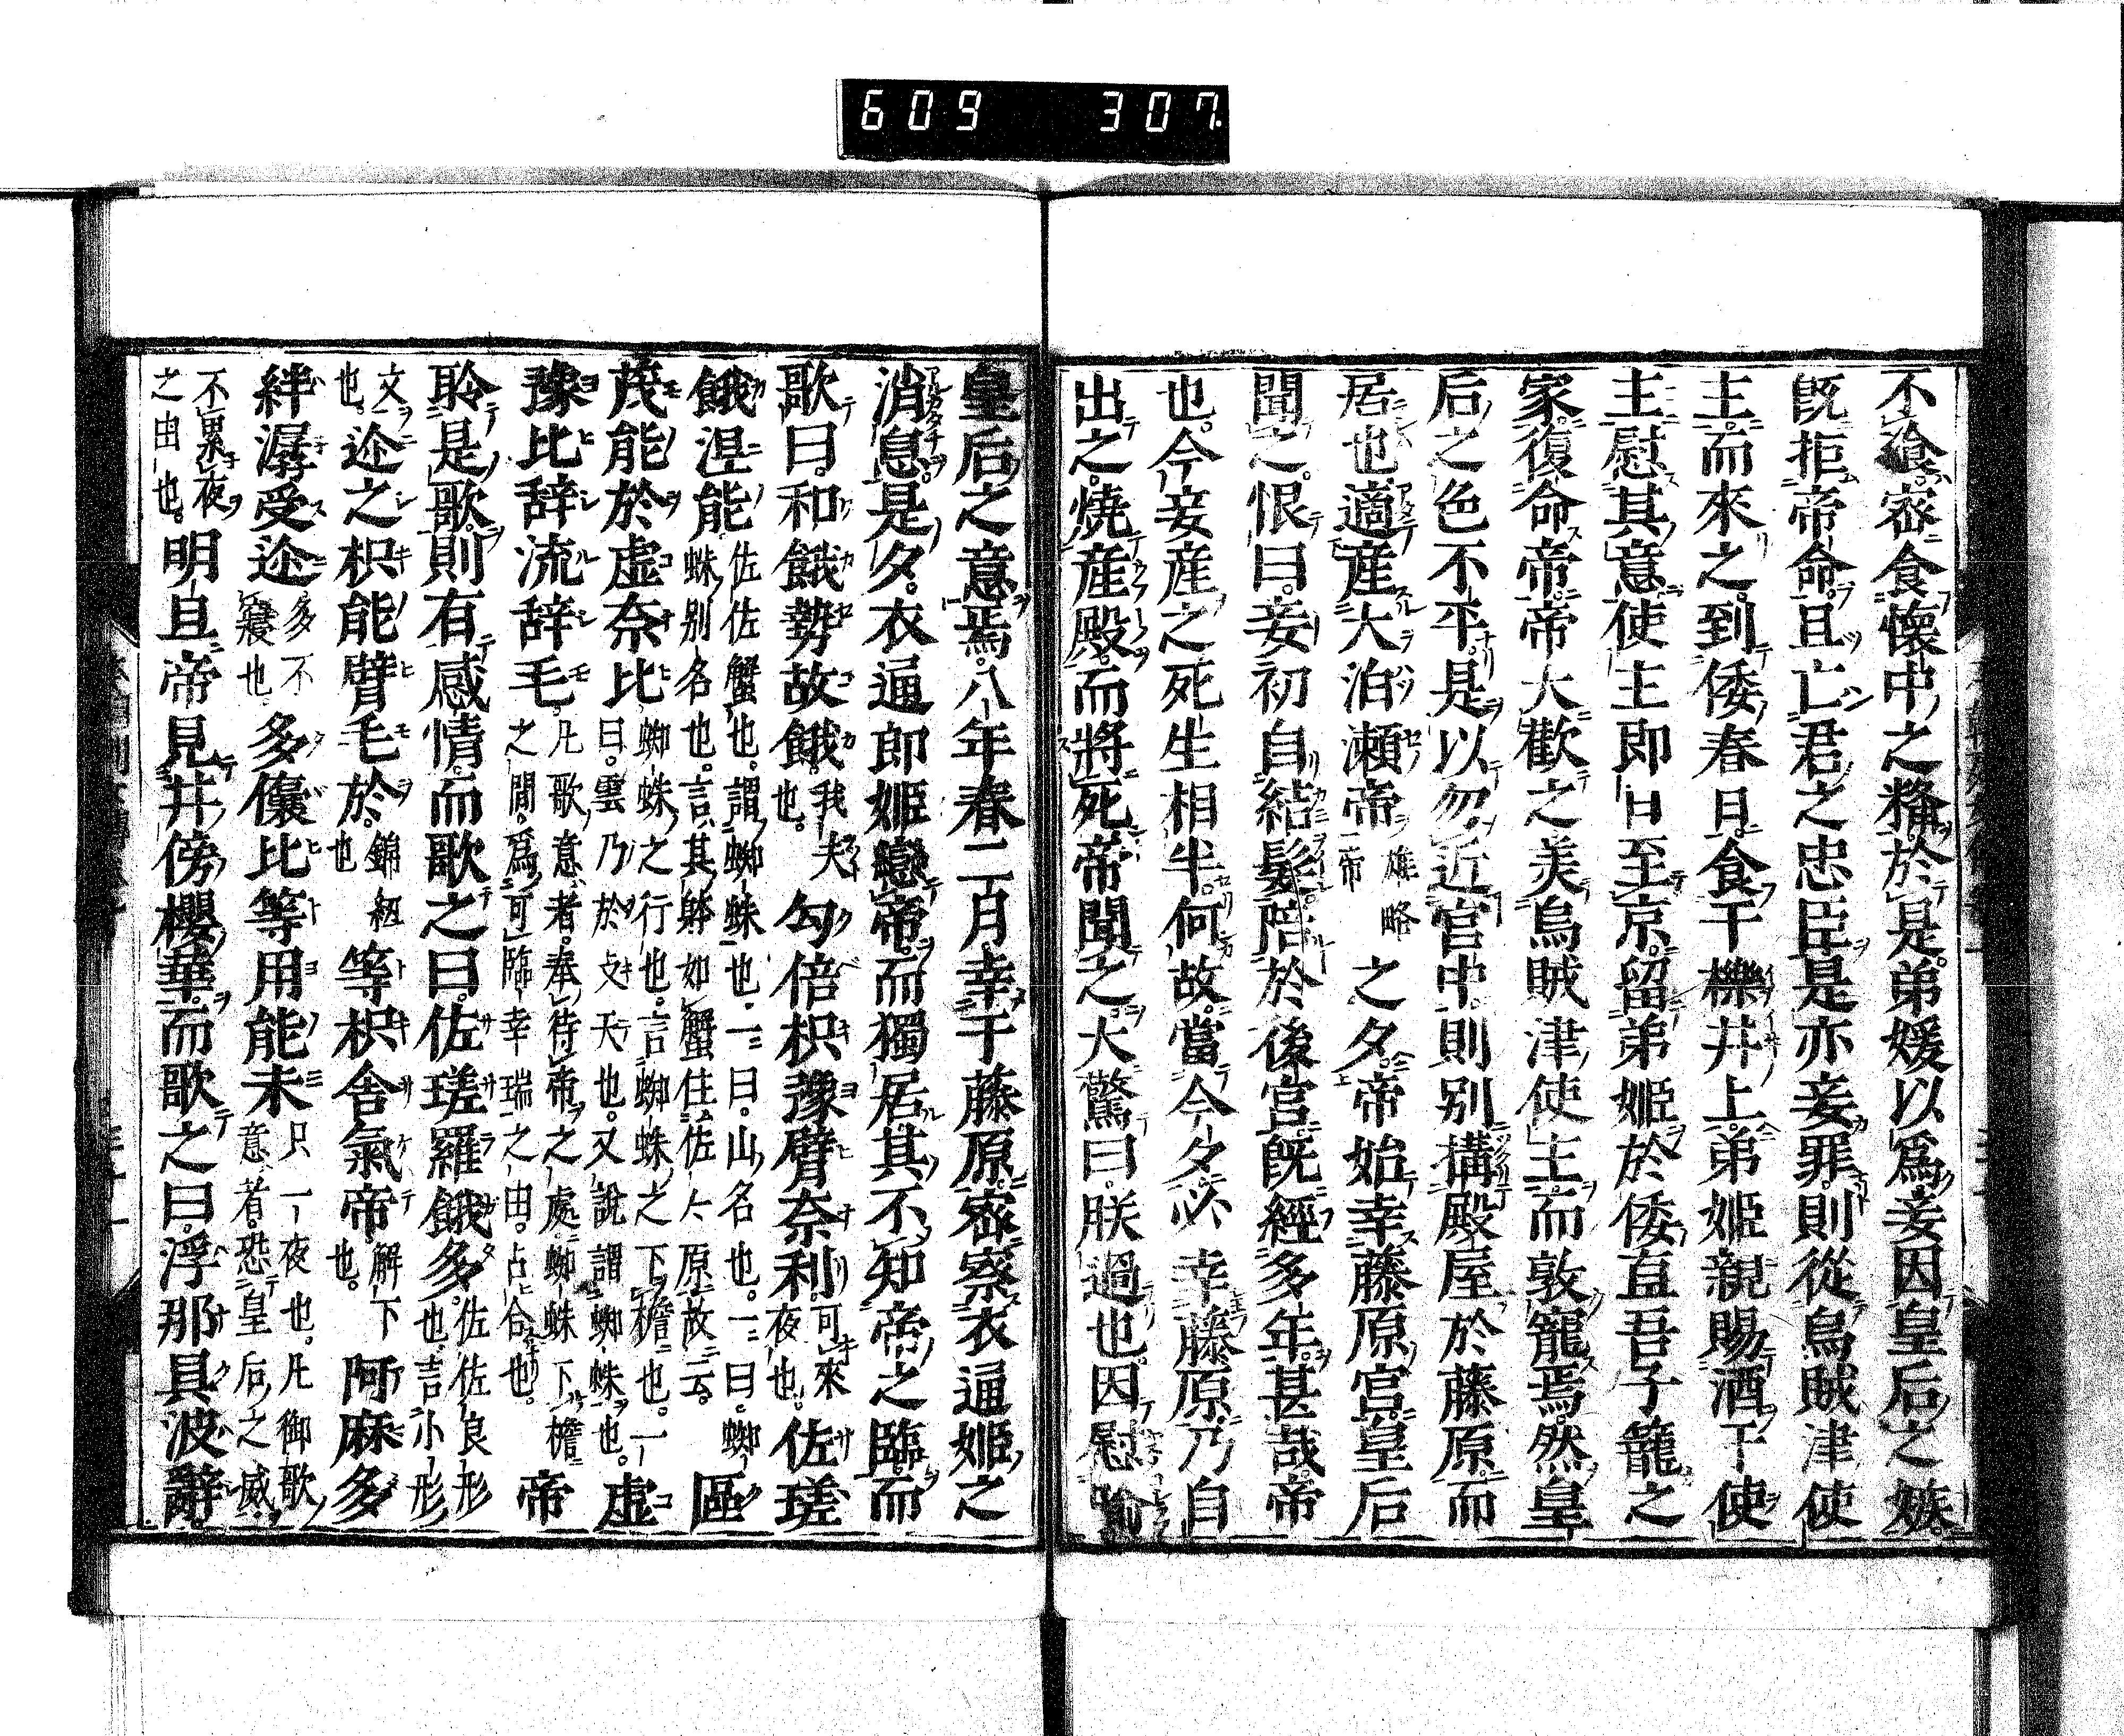 609 307
不飡密食懷中之糒於是弟媛以爲妾因皇后之嫉
既拒帝命且亡君之忠臣是亦妾罪則從烏賊津使
主而來之到倭春日食于櫟井上弟姬親賜酒于使
主慰其意使主即日至京留弟姬於倭直吾子籠之
家復命帝帝大歡之美烏賊津使主而敦寵焉然皇
后之色不平是以勿近宮中則別搆殿屋於藤原而
居也適産大泊瀬帝雄略帝之夕帝始幸藤原宮皇后
聞之恨曰妾初自結髮陪於後宮既經多年甚哉帝
也今妾産之死生相半何故當今夕必幸藤原乃自
出之燒産殿而將死帝聞之大驚曰朕過也因慰喻
皇后之意焉八年春二月幸于藤原密察衣逼姬之
消息是夕衣逼郎姬戀帝而獨居其不知帝之臨而
歌曰和餓勢故餓我夫也勾倍枳豫臂奈利可來夜也佐瑳
餓涅能佐佐蟹也謂蜘蛛也一曰山名也一曰蜘蛛別名也言其躰如蟹住佐々原故云區
茂能於虚奈比蜘蛛之行也言蜘蛛之下檐也一曰雲乃於支天也又說謂蜘蛛也虚
豫比辞流辞毛凡歌意者奉待帝之處蜘蛛下檐之間爲可臨幸瑞之由占合也帝
聆是歌則有感情而歌之曰佐瑳羅餓多佐佐良形也言小形
文也迩之枳能臂毛於錦紐也等枳舍氣帝解下也阿麻多
絆潺受迩多不寢也多儴比等用能未只一夜也凡御歌意者恐皇后之威
不累夜之由也明旦帝見井傍櫻華而歌之曰浮那具波辭